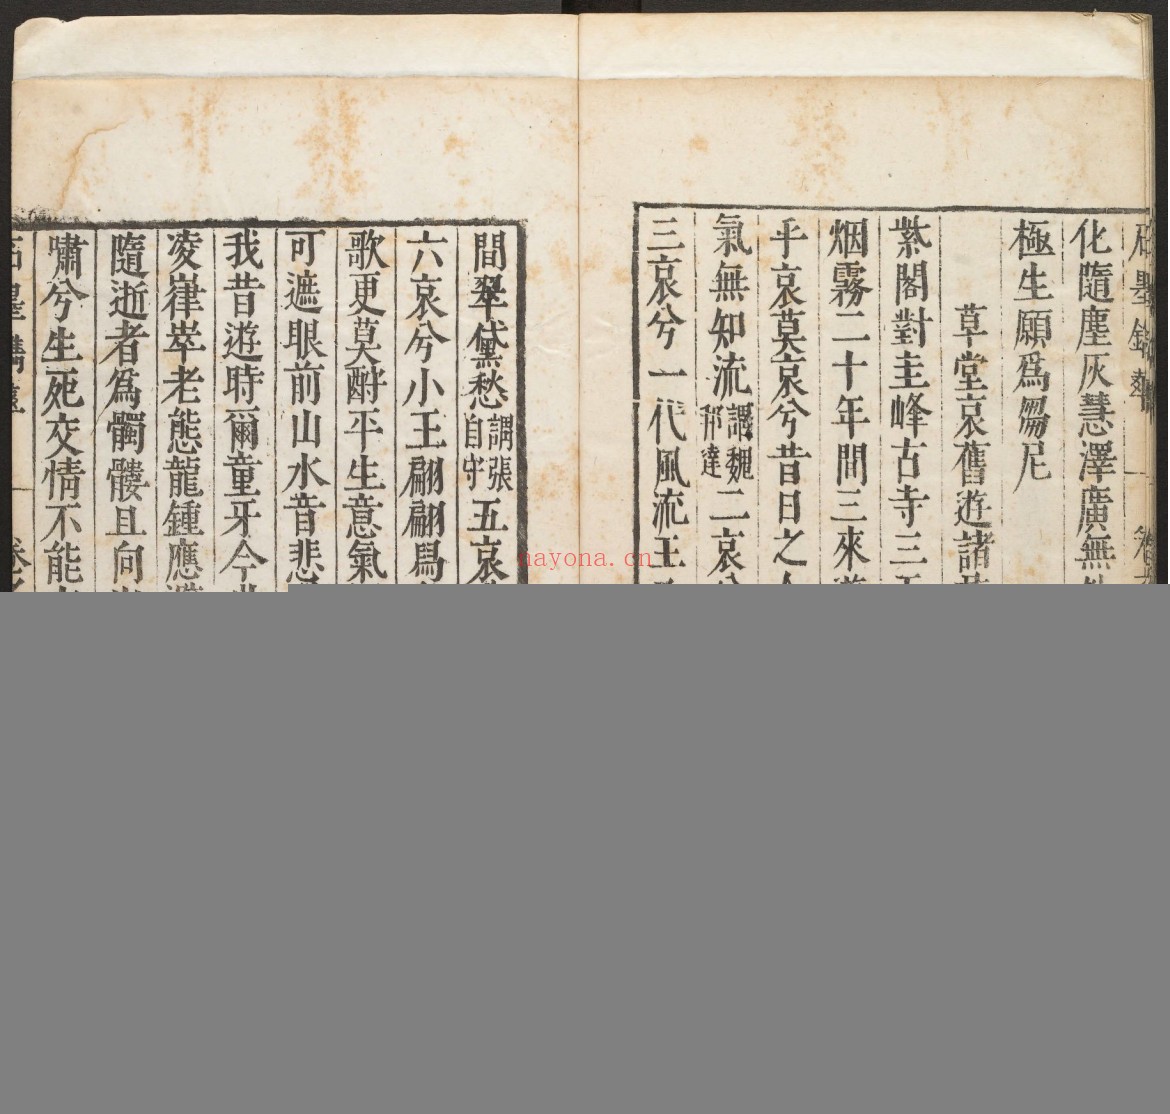 石墨鐫華
化隨塵灰慧澤廣無
極生願爲芻尼
草堂哀舊遊諸
紫閣對圭峰古寺三
烟霧二十年間三來
乎哀莫哀兮昔日之
氣無知流謂魏邦達二哀
三哀兮一代風流王
間翠黛愁謂張自守五哀
六哀兮小王翩翩爲
歌更莫酧平生意氣
可遮眼前山水音悲
我昔遊時爾童牙今
凌嵂崒老態龍鍾應
隨逝者爲髑髏且向
嘯兮生死交情不能
nayona.cn